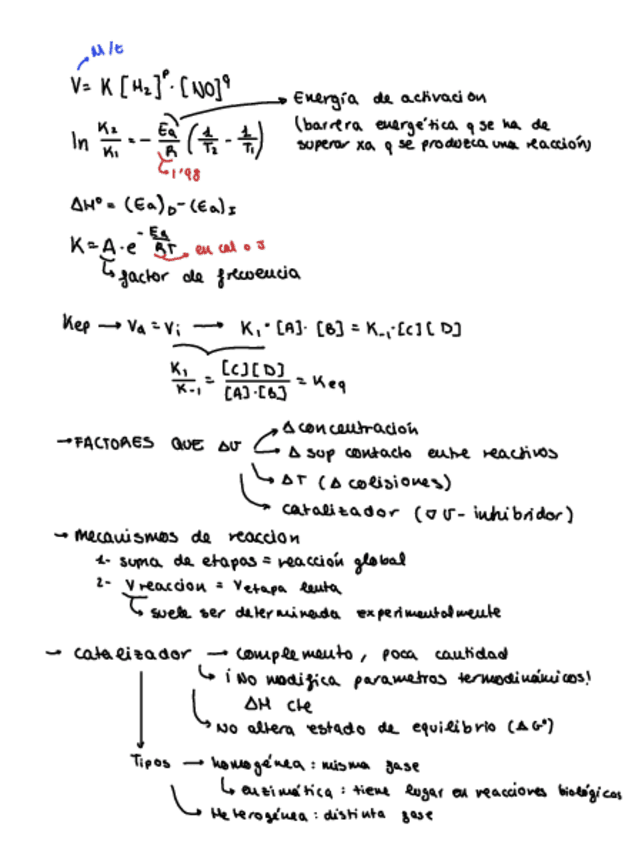 M/t
V= K [H₂]ᵖ · [NO]^q
ln K₂/K₁ = - Ea/R (1/T₂ - 1/T₁)
Energía de activación
(barrera energética q se ha de
superar xa q se produzca una reacción)
1'98
ΔHº = (Ea)_D - (Ea)_I
K = A · e^(-Ea/RT) en cal o J
factor de frecuencia
Kep → Va = Vi → K₁ · [A] · [B] = K₋₁ · [C] [D]
K₁/K₋₁ = [C][D]/[A]·[B] = Keq
→ FACTORES QUE Δ𝑣
Δ concentración
Δ sup contacto entre reactivos
ΔT (Δ colisiones)
catalizador (∇ 𝑣 - inhibridor)
→ mecanismos de reacción
1- suma de etapas = reacción global
2- Vreaccion = Vetapa lenta
suele ser determinada experimentalmente
→ catalizador → complemento, poca cantidad
¡No modifica parametros termodinámicos!
ΔH cte
No altera estado de equilibrio (ΔGº)
Tipos → homogénea : misma fase
enzimática : tiene lugar en reacciones biológicos
Heterogénea : distinta fase